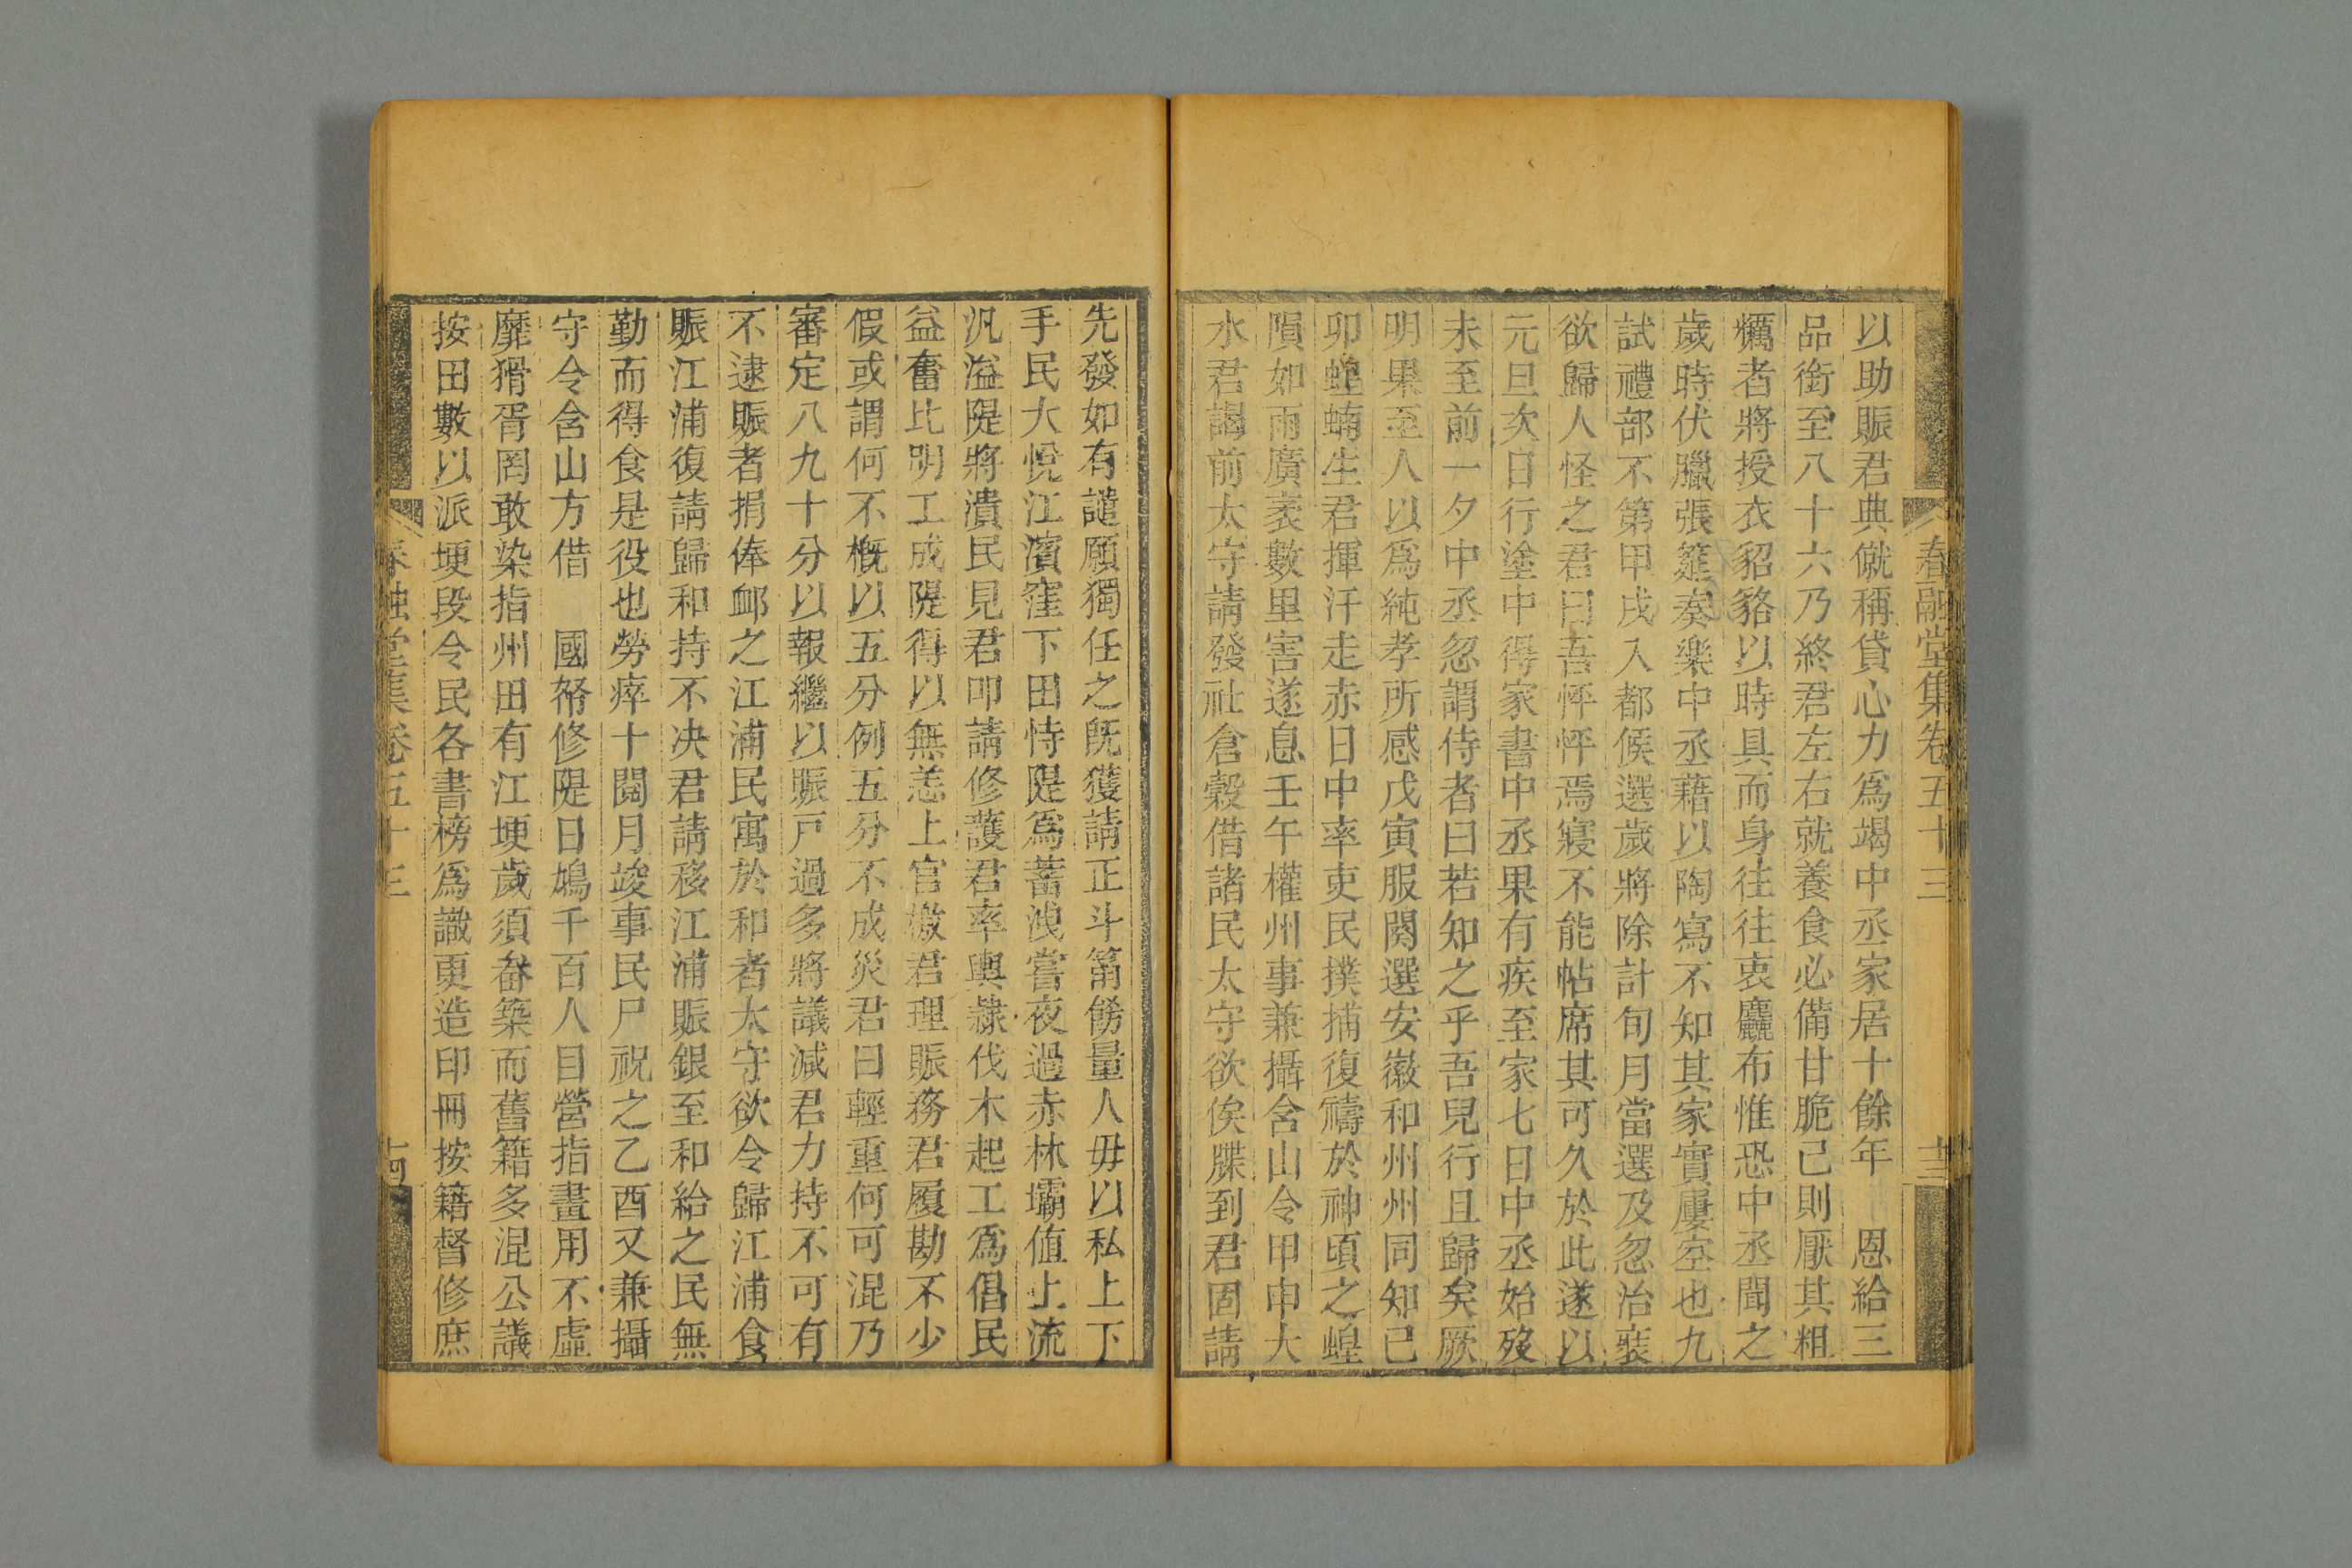 春融堂集卷五十三
十三
以助賑君典僦稱貸心力爲竭中丞家居十餘年　恩給三
品銜至八十六乃終君左右就養食必備甘脆己則厭其粗
糲者將授衣貂貉以時具而身往往衷麤布惟恐中丞聞之
歲時伏臘張筵奏樂中丞藉以陶寫不知其家實屢空也九
試禮部不第甲戌入都候選歲將除計旬月當選及忽治裝
欲歸人怪之君曰吾怦怦焉寢不能帖席其可久於此遂以
元旦次日行塗中得家書中丞果有疾至家七日中丞始歿
未至前一夕中丞忽謂侍者曰若知之乎吾兒行且歸矣厥
明果至人以爲純孝所感戊寅服闋選安徽和州州同知己
卯蝗蝻生君揮汗走赤日中率吏民撲捕復禱於神頃之蝗
隕如雨廣袤數里害遂息壬午權州事兼攝含山令甲申大
水君謁前太守請發社倉穀借諸民太守欲俟牒到君固請
先發如有譴願獨任之既獲請正斗筩餝量人毋以私上下
手民大悅江濱窪下田恃隄爲蓄洩嘗夜過赤林壩值上流
汎溢隄將潰民見君叩請修護君率輿隸伐木起工爲倡民
益奮比明工成隄得以無恙上官檄君理賑務君履勘不少
假或謂何不槪以五分例五分不成災君曰輕重何可混乃
審定八九十分以報繼以賑戸過多將議減君力持不可有
不逮賑者捐俸卹之江浦民寓於和者太守欲令歸江浦食
賑江浦復請歸和持不决君請移江浦賑銀至和給之民無
勤而得食是役也勞瘁十閱月竣事民尸祝之乙酉又兼攝
守令含山方借　國帑修隄日鳩千百人目營指畫用不虛
靡猾胥罔敢染指州田有江埂歲須畚築而舊籍多混公議
按田數以派埂段令民各書榜爲識更造印冊按籍督修庶
春融堂集卷五十三
十四